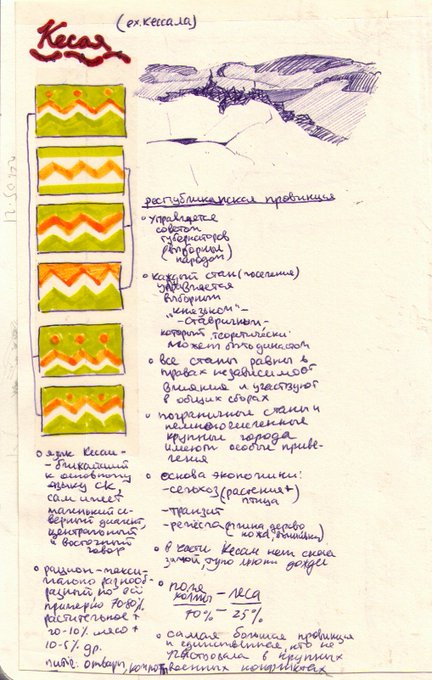 Кесая
(ех. кессала)
республиканская провинция
управляется
советом
губернаторов
(выборным
народом)
каждый стан (поселение)
управляется
выборным
"князьком"-
-ставричным-
который, теоретически
может быть династом
все станы равны в
правах независимо от
влияния и участвуют
в общих сборах
пограничные станы и
немногочисленные
крупные города
имеют особые приви-
легии
основа экономики:
-сельхоз (растения +
птица
-транзит
-ремёсла (глина дерево
кожа,
в части Кесаи нет снега
зимой, тупо дожди
поля
холмы - леса
70% - 25%
самая большая провинция
и единственная, кто не
участвовала в крупных
военных конфликтах
язык Кесаи-
-ближайший
к основному
языку СК,
сам имеет
маленький се-
верный диалект,
центральный
и восточный
говор
рацион - макси-
мально разнооб-
разный, но
примерно 70-80%
растительное +
20-10% мясо +
10-5% др.
питьё: отвары,